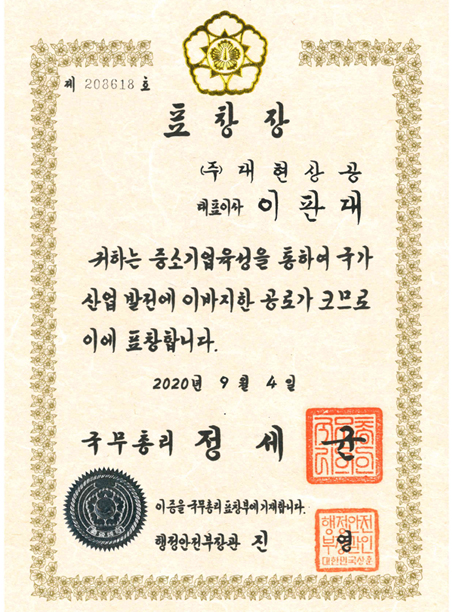 제 208618 호
표 창 장
(주) 대 현 상 공
대표이사 이 판 대
귀하는 중소기업육성을 통하여 국가
산업 발전에 이바지한 공로가 크므로
이에 표창합니다.
2020년 9 월 4 일
국무총리 정 세 균
이 증을 국무총리 표창부에 기재합니다.
행정안전부장관 진 영